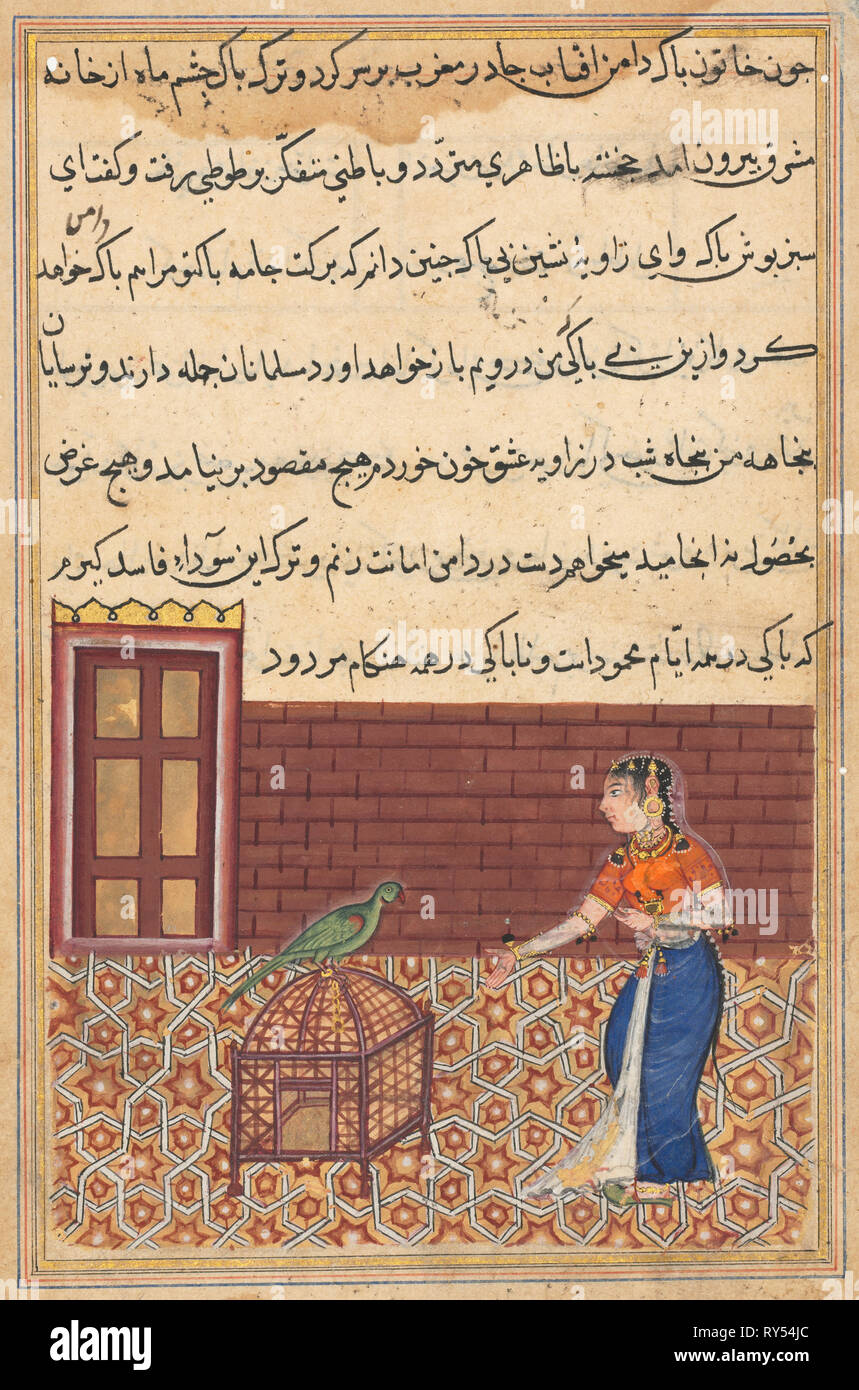 جون خاتون پاک دامن افتاب جادر مغرب بر سر کرد و ترک پاک جشم ماه از خانه
مشرق بیرون امد خجسته با ظاهري متردّد و باطني متفکّر بر طوطي رفت و کفت اي
دامن
سبز بوش باک و اي زاویه نشین بي باک جنین دانم که برکت جامه باک تو مرا هم باک خواهد
کرد و ازین بي باکي من در ویم باز خواهد اورد مسلمانان جمله دارند و ترسایان
بنجاهه من بنجاه شب در زاویه عشق خون خوردم هیچ مقصود بر نیامد و هیچ غرض
بحُصُول نه انجامید میخواهم دست در دامن امانت زنم و ترک این سوداء فاسد کیرم
که باکي در همه ایّام محمود است و ناباکي در همه هنکام مردود
alamy
alamy
Image ID: RY54JC
www.alamy.com